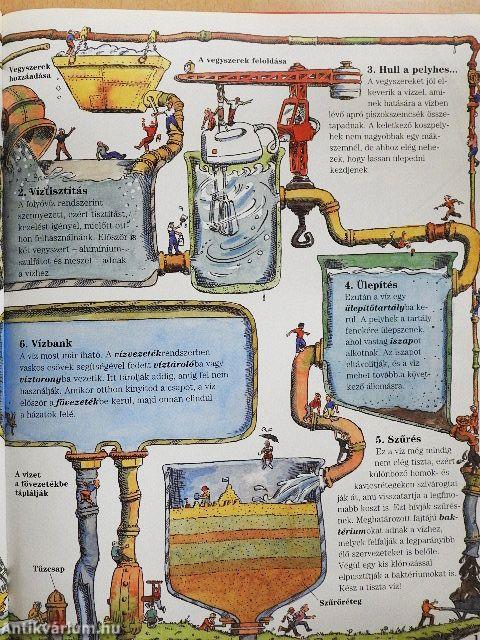 Vegyszerek
hozzáadása
A vegyszerek feloldása
3. Hull a pelyhes...
A vegyszereket jól el-
keverik a vízzel, ami-
nek hatására a vízben
lévő apró piszokszemcsék össze-
tapadnak. A keletkező koszpely-
hek nem nagyobbak egy mák-
szemnél, de ahhoz elég nehe-
zek, hogy lassan ülepedni
kezdjenek.
2. Víztisztítás
A folyóvíz rendszerint
szennyezett, ezért tisztítást,
kezelést igényel, mielőtt ott-
hon felhasználnánk. Először is
két vegyszert – alumínium-
szulfátot és meszet – adnak
a vízhez.
4. Ülepítés
Ezután a víz egy
ülepítőtartályba ke-
rül. A pelyhek a tartály
fenekére ülepszenek,
ahol vastag iszapot
alkotnak. Az iszapot
eltávolítják, és a víz
mehet tovább a követ-
kező állomásra.
6. Vízbank
A víz most már iható. A vízvezetékrendszerben
vaskos csövek segítségével fedett víztárolóba vagy
víztoronyba vezetik. Itt tárolják addig, amíg fel nem
használják. Amikor otthon kinyitod a csapot, a víz
először a fővezetékbe kerül, majd onnan elindul
a házatok felé.
5. Szűrés
Ez a víz még mindig
nem elég tiszta, ezért
különböző homok- és
kavicsrétegeken szivárogtat-
ják át, ami visszatartja a legfino-
mabb koszt is. Ezt hívják szűrés-
nek. Meghatározott fajtájú bak-
tériumokat adnak a vízhez,
melyek felfalják a legparányibb
élő szervezeteket is belőle.
Végül egy kis klórozással
elpusztítják a baktériumokat is.
Kész a tiszta víz!
A vizet
a fővezetékbe
táplálják
Tűzcsap
Szűrőréteg
Antikvárium.hu